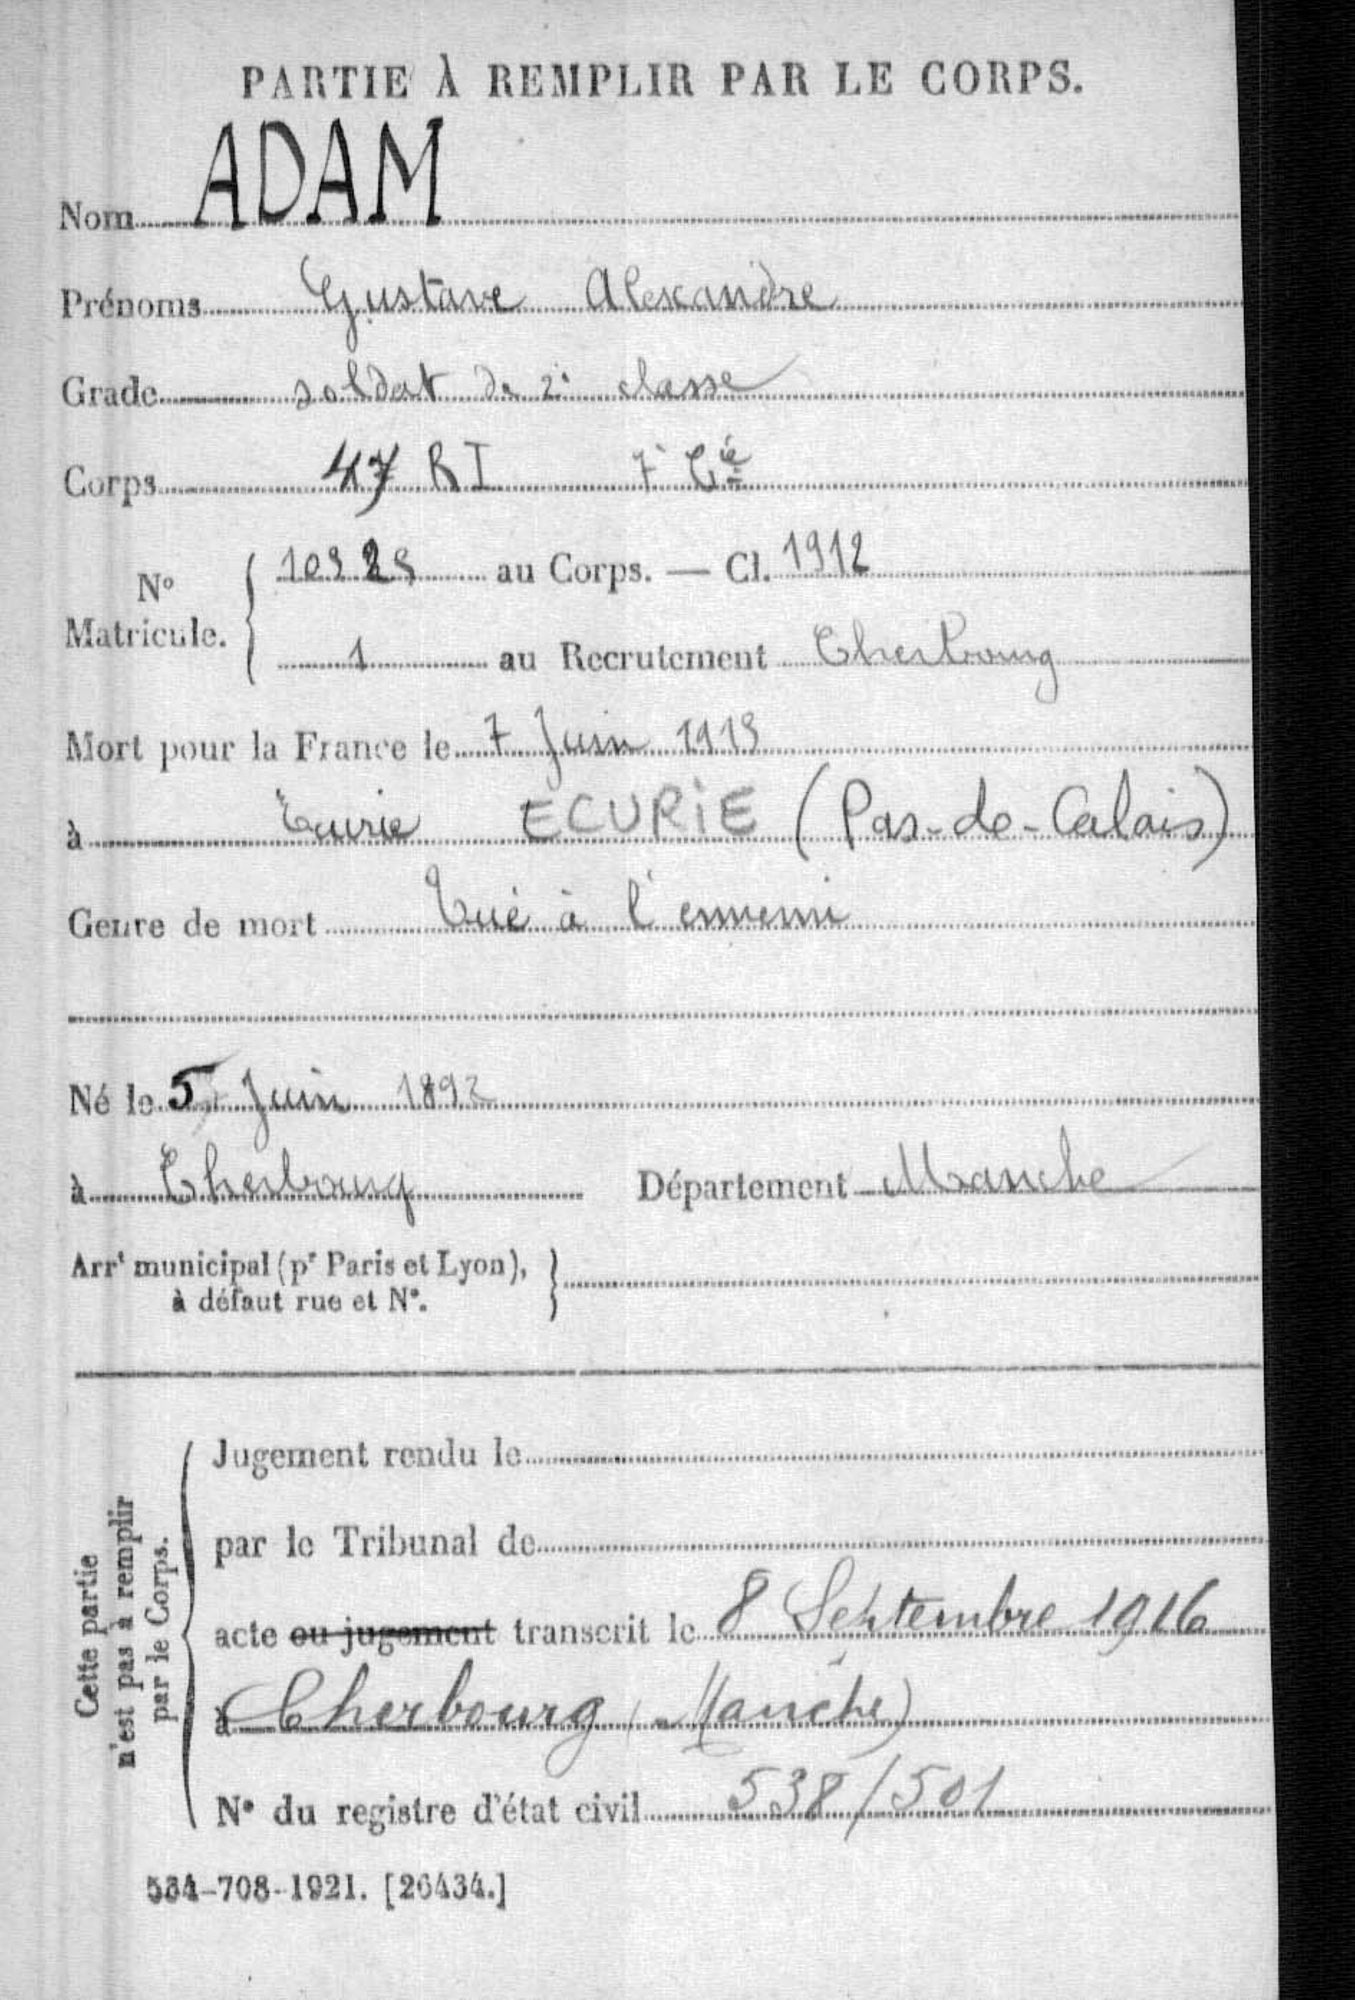 PARTIE À REMPLIR PAR LE CORPS.
Nom ADAM
Prénoms Gustave Alexandre
Grade soldat de 2e classe
Corps 47 RI 7e Cie
No Matricule. 10325 au Corps. — Cl. 1912
1 au Recrutement Cherbourg
Mort pour la France le 7 Juin 1915
à Ecurie ECURIE (Pas-de-Calais)
Genre de mort Tué à l'ennemi
Né le 5 Juin 1892
à Cherbourg Département Manche
Arrt municipal (pr Paris et Lyon),
à défaut rue et No.
Cette partie
n'est pas à remplir
par le Corps.
Jugement rendu le
par le Tribunal de
acte ou jugement transcrit le 8 Septembre 1916
à Cherbourg (Manche)
No du registre d'état civil 538/501
534-708-1921. [26434.]